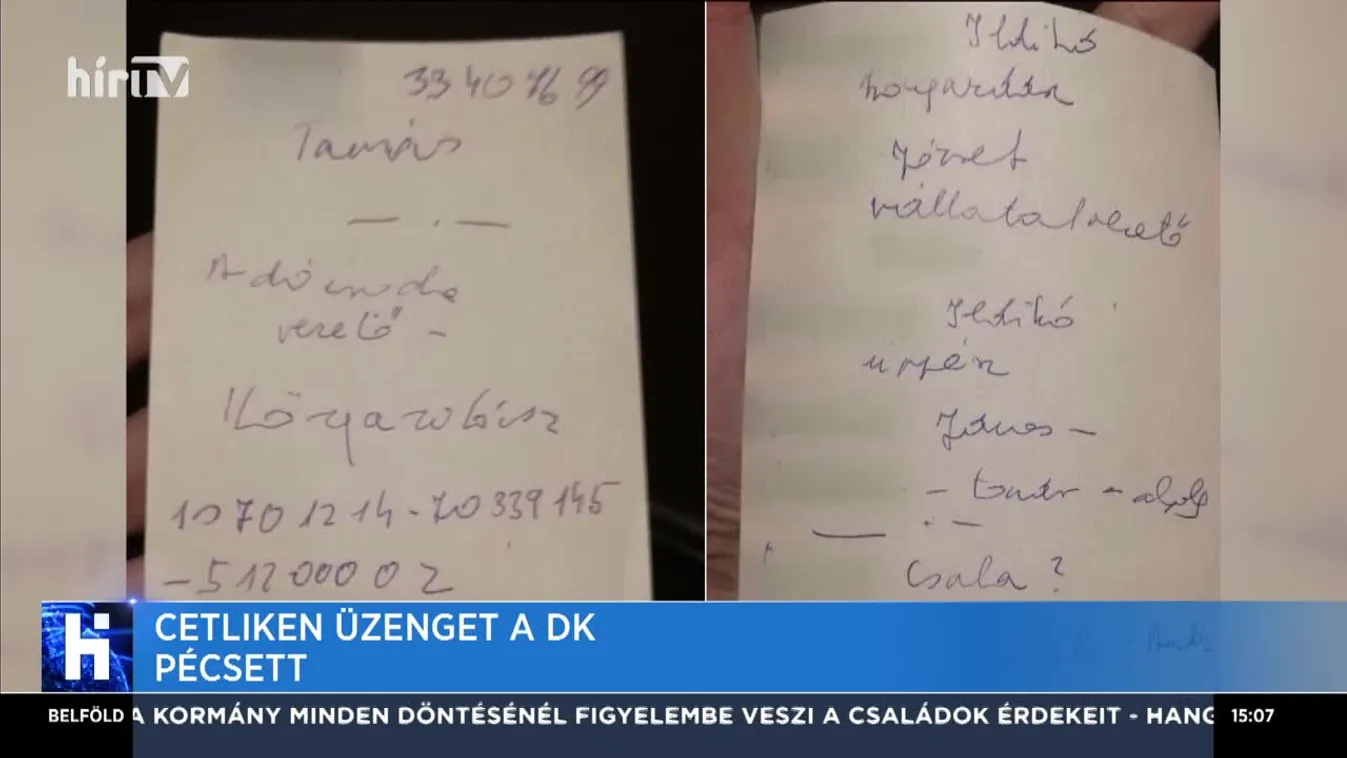 hírTV
33 40 76 99
Tamás
Adóiroda
vezető -
Közgazdász
10701214-70339145
-51200002
Ildikó
közgazdász
József
vállalatvezető
Ildikó
ügyész
János -
- tanár -
Csala?
CETLIKEN ÜZENGET A DK
PÉCSETT
BELFÖLD A KORMÁNY MINDEN DÖNTÉSÉNÉL FIGYELEMBE VESZI A CSALÁDOK ÉRDEKEIT - HANG 15:07